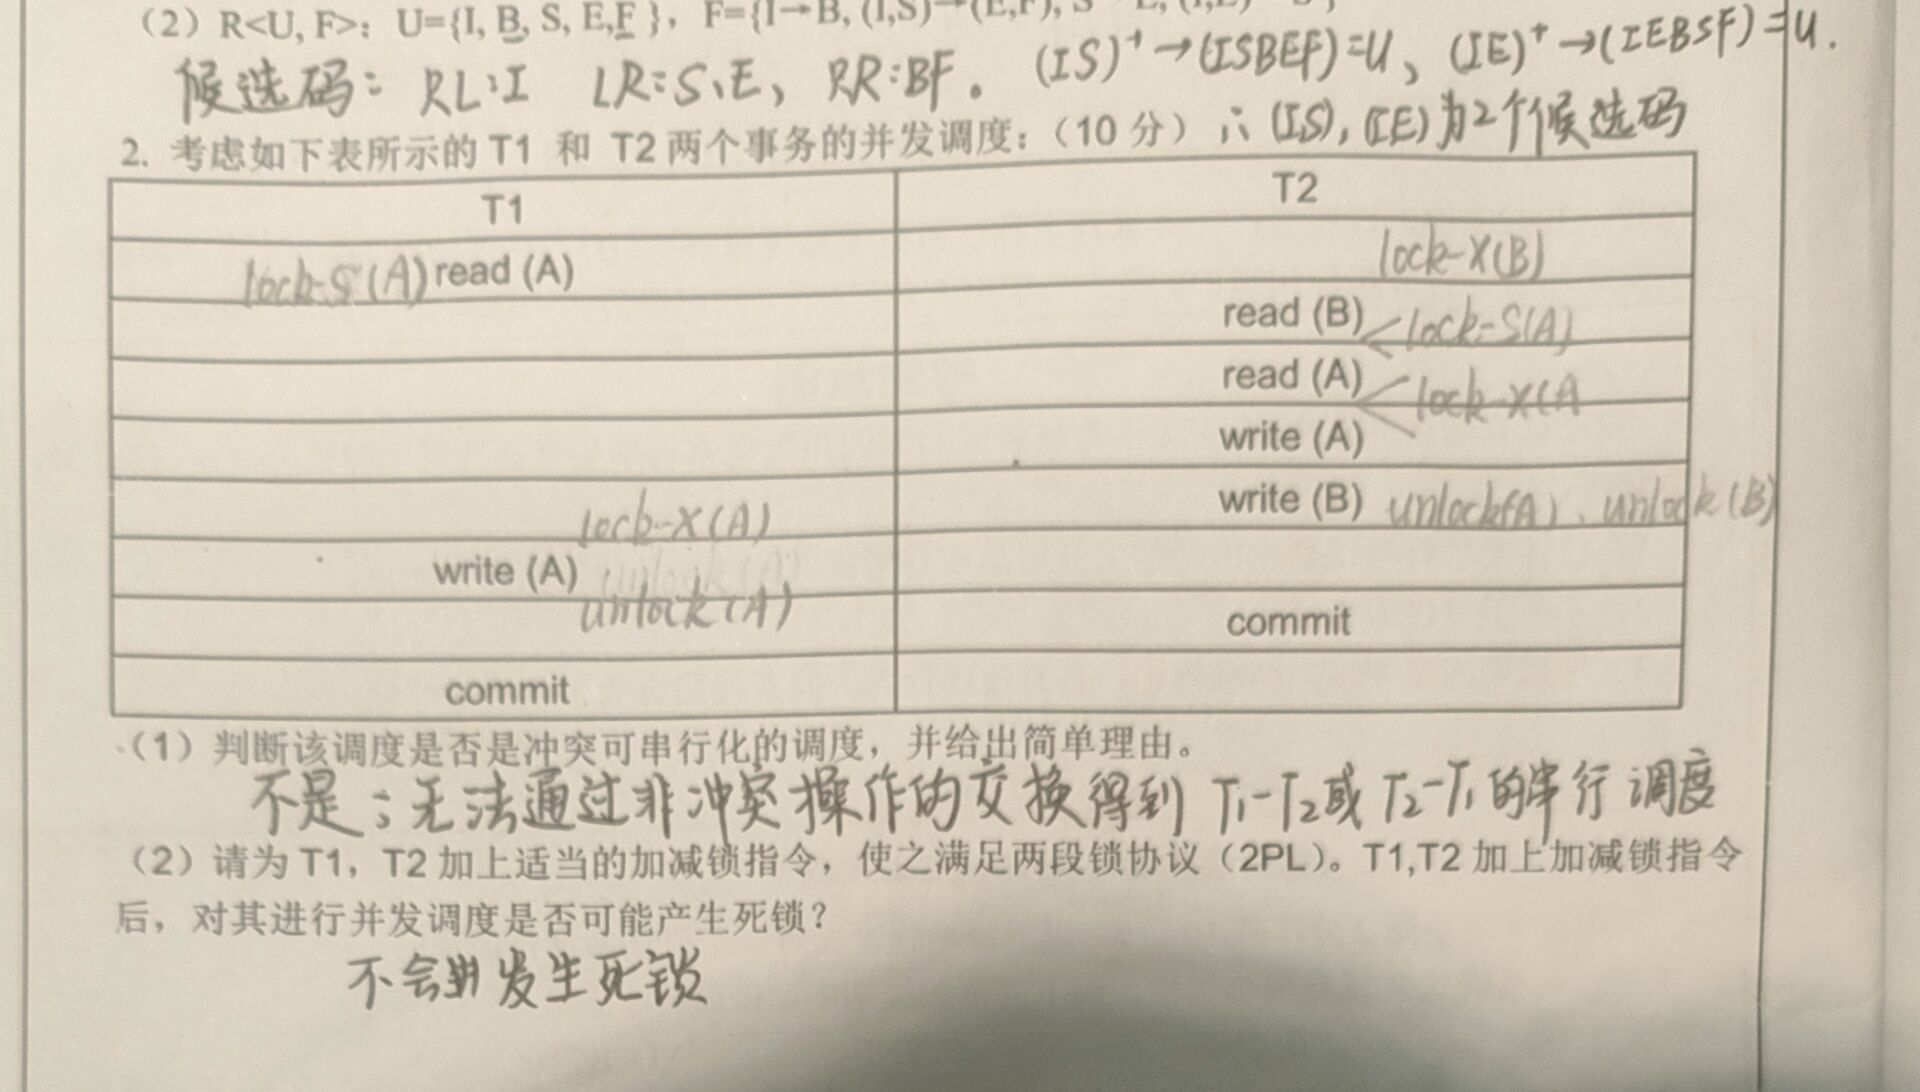 （2）R<U, F>：U={I, B, S, E,F }，F={I→B, (I,S)→(E,F), S→E, (I,E)→S }
候选码：RL:I LR:S、E、RR:BF。(IS)⁺→(ISBEF)=U、(IE)⁺→(IEBSF)=U.
2. 考虑如下表所示的 T1 和 T2 两个事务的并发调度：（10 分）∴(IS),(IE)为2个候选码
T1 T2
lock-S(A) read (A) lock-X(B)
read (B) lock-S(A)
read (A) lock-X(A
write (A)
lock-X(A) write (B) unlock(A)、unlock(B)
write (A) unlock(A)
unlock(A) commit
commit
（1）判断该调度是否是冲突可串行化的调度，并给出简单理由。
不是；无法通过非冲突操作的交换得到 T₁-T₂或 T₂-T₁的串行调度
（2）请为 T1，T2 加上适当的加减锁指令，使之满足两段锁协议（2PL）。T1,T2 加上加减锁指令
后，对其进行并发调度是否可能产生死锁？
不会 发生死锁